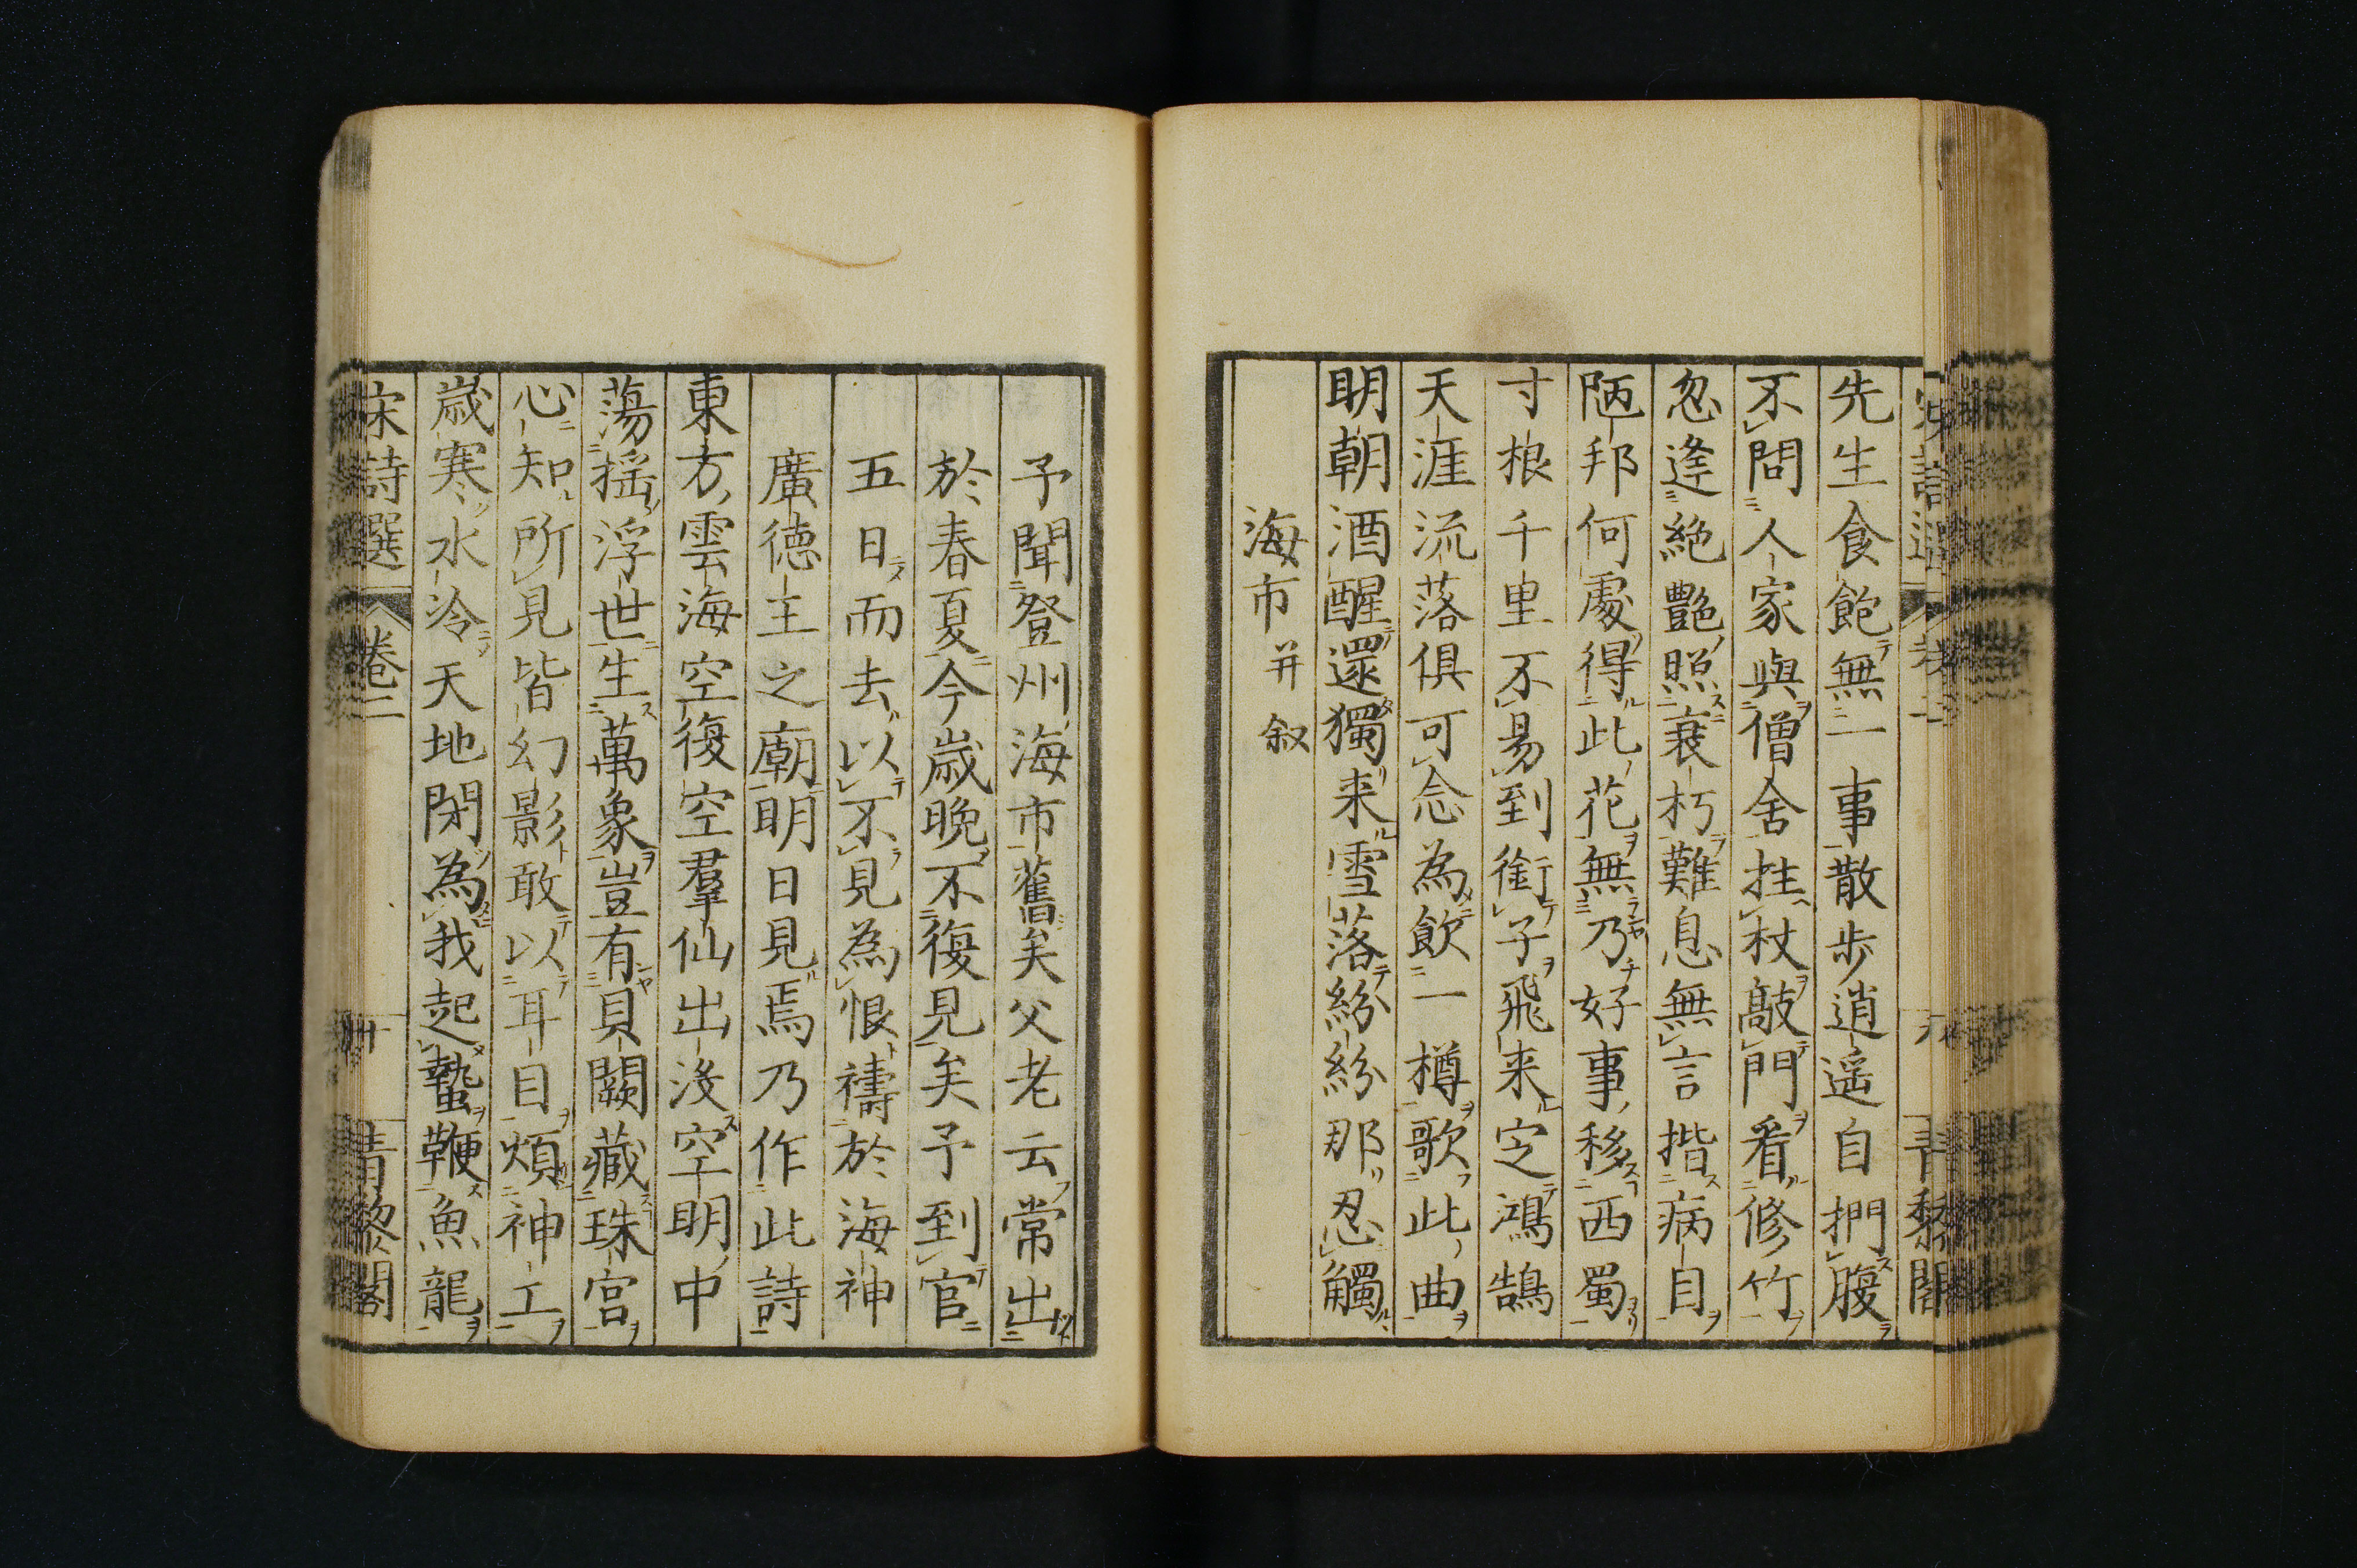 先生食飽無一事散歩逍遥自捫腹
不問人家與僧舍挂杖敲門看修竹
忽逢絶艶照衰朽難息無言揩病目
陋邦何處得此花無乃好事移西蜀
寸根千里不易到銜子飛来定鴻鵠
天涯流落俱可念為飲一樽歌此曲
明朝酒醒還獨来雪落紛紛那忍觸
海市并叙
予聞登州海市舊矣父老云常出
於春夏今歳晩不復見矣予到官
五日而去以不見為恨禱於海神
廣徳王之廟明日見焉乃作此詩
東方雲海空復空羣仙出没空明中
蕩揺浮世生萬象豈有貝闕藏珠宮
心知所見皆幻影敢以耳目煩神工
歳寒水冷天地閉為我起蟄鞭魚龍
宋詩選 卷二 卅 青黎閣